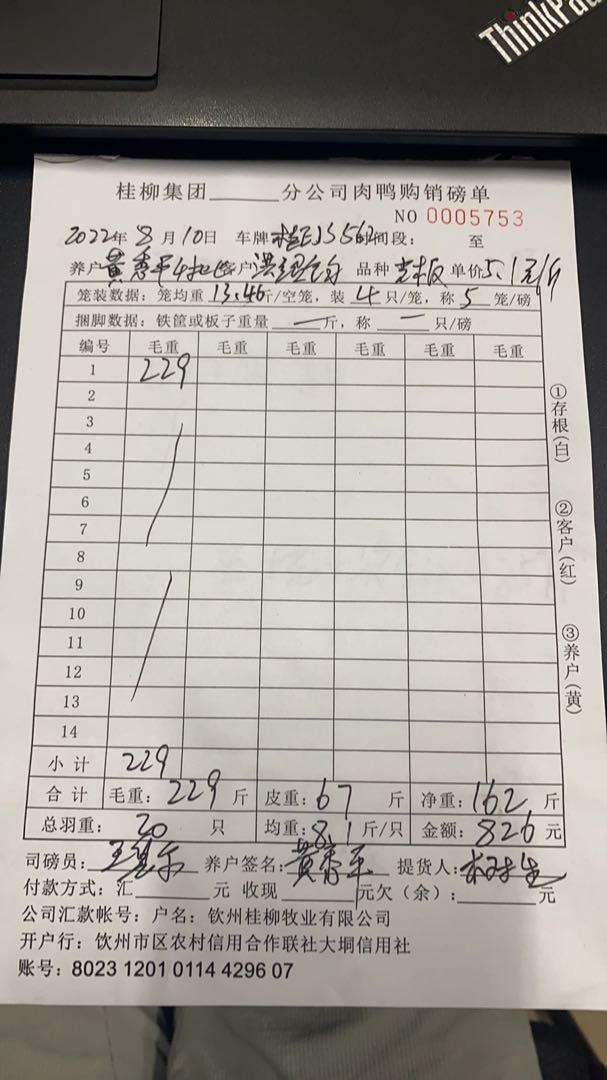 ThinkPad
桂柳集团______分公司肉鸭购销磅单
NO 0005753
2022年 8 月 10日 车牌 时间段： 至
养户 黄秀平 客户 品种 单价5.1元/斤
笼装数据：笼均重 13.46斤/空笼，装 4 只/笼，称 5 笼/磅
捆脚数据：铁筐或板子重量 — 斤，称 — 只/磅
编号 毛重 毛重 毛重 毛重 毛重 毛重
1 229
2
3
4
5
6
7
8
9
10
11
12
13
14
小计 229
合计 毛重：229 斤 皮重：67 斤 净重：162 斤
总羽重： 20 只 均重：8.1 斤/只 金额：826 元
司磅员： 养户签名：黄秀平 提货人：
付款方式：汇______元 收现______元欠（余）：______元
公司汇款帐号：户名：钦州桂柳牧业有限公司
开户行：钦州市区农村信用合作联社大垌信用社
账号：8023 1201 0114 4296 07
①存根(白)
②客户(红)
③养户(黄)